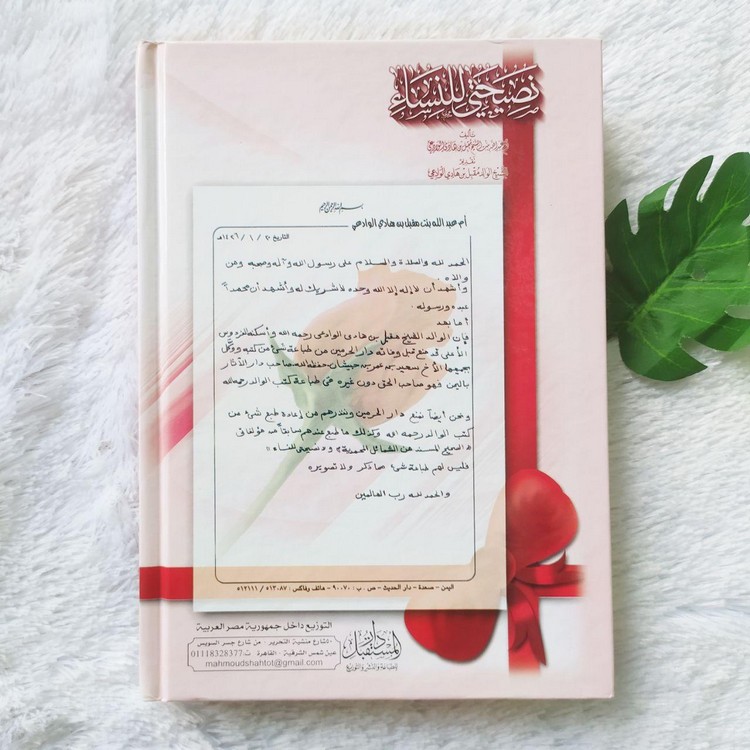 نصيحتي للنساء
تأليف
أم عبد الله بنت الشيخ مقبل بن هادي الوادعي
تقديم
الشيخ الوالد مقبل بن هادي الوادعي
بسم الله الرحمن الرحيم
أم عبد الله بنت مقبل بن هادي الوادعي
التاريخ ٢٠ / ١ / ١٤٢٦هـ
الحمد لله والصلاة والسلام على رسول الله وآله وصحبه ومن
والاه .
وأشهد أن لا إله إلا الله وحده لا شريك له وأشهد أن محمداً
عبده ورسوله .
أما بعد
فإن الوالد الشيخ مقبل بن هادي الوادعي رحمه الله وأسكنه الفردوس
الأعلى قد منع قبل وفاته دار الحرمين من طباعة شيء من كتبه ووكَّل
بجميعها الأخ سعيد بن عمر بن حبيشان حفظه الله صاحب دار الآثار
باليمن فهو صاحب الحق دون غيره في طباعة كتب الوالد رحمه الله
ونحن أيضاً نمنع دار الحرمين وننذرهم من إعادة طبع شيء من
كتب الوالد رحمه الله وكذلك ما طبع عندهم سابقاً من مؤلفاتي
« الصحيح المسند من الشمائل المحمدية » و « نصيحتي للنساء »
فليس لهم طباعة شيء مما ذكر ولا تصويره
والحمد لله رب العالمين
اليمن - صعدة - دار الحديث - ص . ب : ٩٠٠٧٠ - هاتف وفاكس : ٥١٣٠٨٧ / ٥١٢١١١
التوزيع داخل جمهورية مصر العربية
٥٠ شارع منشية التحرير - من شارع جسر السويس
عين شمس الشرقية - القاهرة ت: 01118328377
mahmoudshahtot@gmail.com
دار المستقبل
للطباعة والنشر والتوزيع